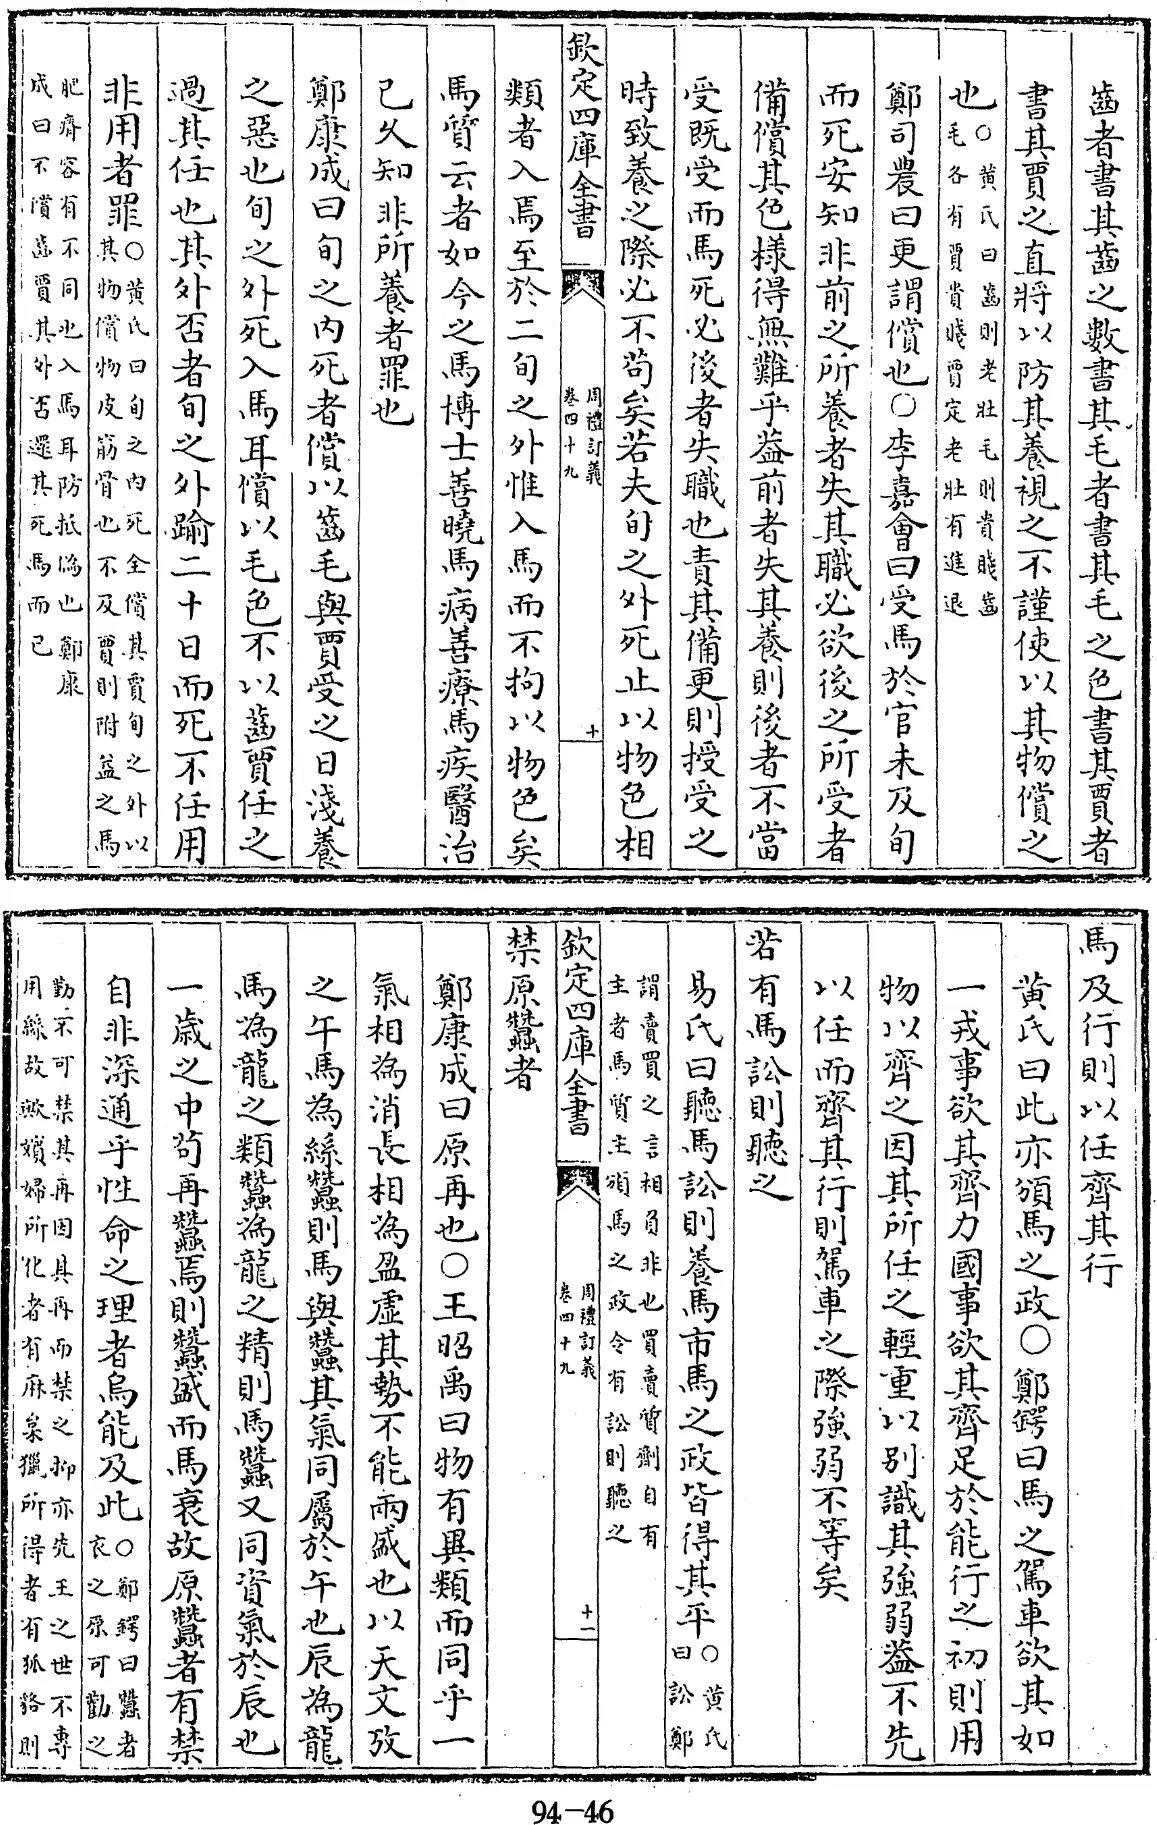 齒者書其齒之數書其毛者書其毛之色書其賈者
書其賈之直將以防其養視之不謹使以其物償之
也○黃氏曰齒則老壯毛則貴賤齒
毛各有賈貴賤賈定老壯有進退
鄭司農曰更謂償也○李嘉會曰受馬於官未及旬
而死安知非前之所養者失其職必欲後之所受者
備償其色樣得無難乎蓋前者失其養則後者不當
受既受而馬死必後者失職也責其備更則授受之
時致養之際必不苟矣若夫旬之外死止以物色相
欽定四庫全書
周禮訂義
卷四十九
十
類者入焉至於二旬之外惟入馬而不拘以物色矣
馬質云者如今之馬博士善曉馬病善療馬疾醫治
已久知非所養者罪也
鄭康成曰旬之内死者償以齒毛與賈受之日淺養
之惡也旬之外死入馬耳償以毛色不以齒賈任之
過其任也其外否者旬之外踰二十日而死不任用
非用者罪○黃氏曰旬之内死全償其賈旬之外以
其物償物皮筋骨也不及賈則附益之馬
肥齊容有不同也入馬耳防抵偽也鄭康
成曰不償齒賈其外否還其死馬而已
馬及行則以任齊其行
黃氏曰此亦頒馬之政○鄭鍔曰馬之駕車欲其如
一戎事欲其齊力國事欲其齊足於能行之初則用
物以齊之因其所任之輕重以别識其強弱蓋不先
以任而齊其行則駕車之際強弱不等矣
若有馬訟則聽之
易氏曰聽馬訟則養馬市馬之政皆得其平○黃氏
曰訟鄭
謂賣買之言相負非也買賣質劑自有
主者馬質主頒馬之政令有訟則聽之
欽定四庫全書
周禮訂義
卷四十九
十一
禁原蠶者
鄭康成曰原再也○王昭禹曰物有異類而同乎一
氣相為消長相為盈虛其勢不能兩盛也以天文攷
之午馬為絲蠶則馬與蠶其氣同屬於午也辰為龍
馬為龍之類蠶為龍之精則馬蠶又同資氣於辰也
一歲之中茍再蠶焉則蠶盛而馬衰故原蠶者有禁
自非深通乎性命之理者烏能及此○鄭鍔曰蠶者
衣之原可勸之
勤不可禁其再因其再而禁之抑亦先王之世不專
用絲故歟嬪婦所化者有麻枲獵所得者有狐貉則
94-46